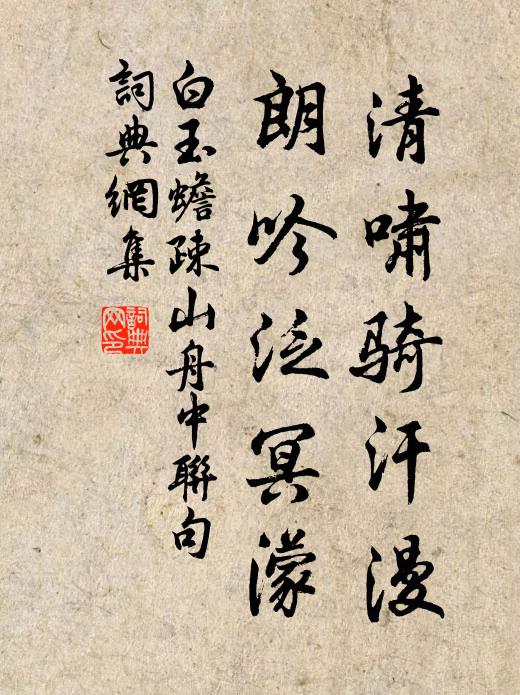 清嘯騎汗漫
朗吟泛冥濛
白玉蟾疎山舟中聯句
詞典網集
詞典網印